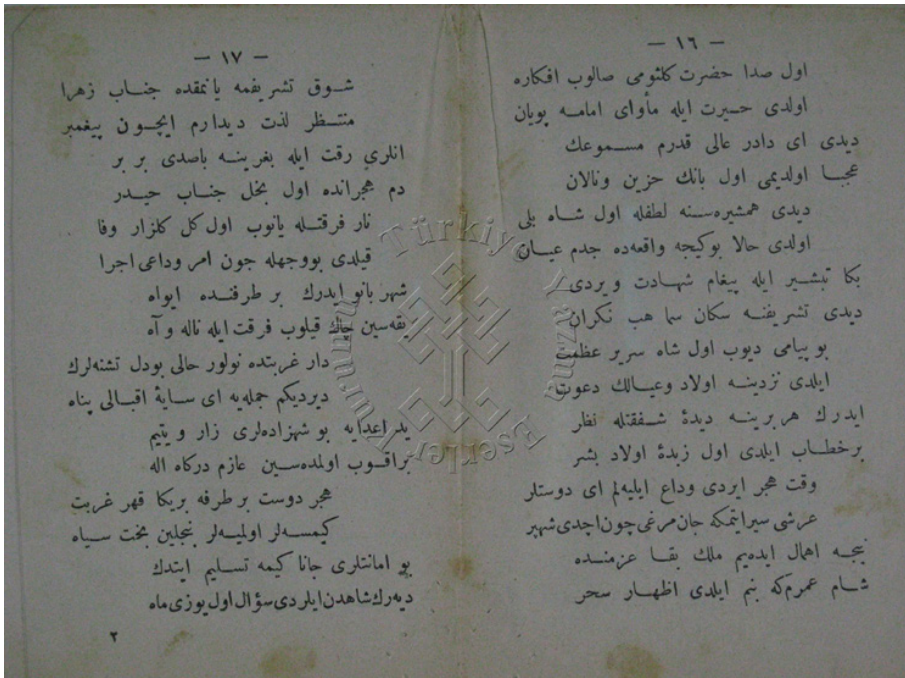 — ١٦ —
اول صدا حضرت كلثومى صالوب افكاره
اولدى حيرت ايله مأواى امامه پويان
ديدى اى دادر عالى قدرم مسموعك
عجبا اولديمى اول بانك حزين ونالان
ديدى همشيره‌سنه لطفله اول شاه بلى
اولدى حالا بوكيجه واقعه‌ده جدم عيان
بكا تبشير ايله پيغام شهادت ويردى
ديدى تشريفنه سكان سما هب نكران
بو پيامى ديوب اول شاه سرير عظمت
ايلدى نزدينه اولاد وعيالك دعوت
ايدرك هربرينه ديدۀ شفقتله نظر
برخطاب ايلدى اول زبدۀ اولاد بشر
وقت هجر ايردى وداع ايليه‌لم اى دوستلر
عرشى سيرايتمكه جان مرغى چون اچدى شهپر
نيجه اهمال ايده‌يم ملك بقا عزمنده
شام عمرم‌كه بنم ايلدى اظهار سحر
— ١٧ —
شوق تشريفمه يانمقده جناب زهرا
منتظر لذت ديدارم ايچون پيغمبر
انلرى رقت ايله بغرينه باصدى بر بر
دم هجرانده اول نجل جناب حيدر
نار فرقتله يانوب اول كل كلزار وفا
قيلدى بووجهله چون امر وداعى اجرا
شهربانو ايدرك بر طرفنده ايواه
يقه‌سين چاك قيلوب فرقت ايله ناله و آه
دار غربتده نولور حالى بودل تشنه‌لرك
ديرديكم جمله‌يه اى سايۀ اقبالى پناه
يد اعدايه بو شهزاده‌لرى زار و يتيم
براقوب اولمده‌سين عازم دركاه اله
هجر دوست بر طرفه بريكا قهر غربت
كيمسه‌لر اولميه‌لر بنجلين بخت سياه
بو امانتلرى جانا كيمه تسليم ايتدك
ديه‌رك شاهدن ايلردى سؤال اول يوزى ماه
٢
Türkiye Yazma Eserler Kurumu